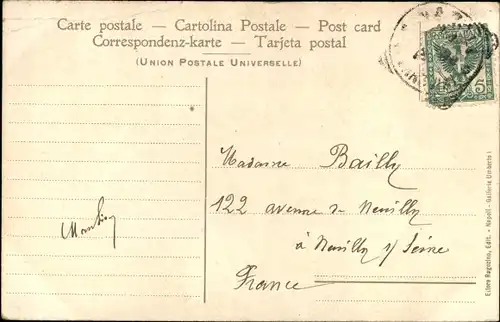 Carte postale — Cartolina Postale — Post card
Correspondenz-karte — Tarjeta postal
(UNION POSTALE UNIVERSELLE)
5
Madame Bailly
122 avenue de Neuilly
à Neuilly s/ Seine
France
Ettore Ragozino, Edit. - Napoli - Galleria Umberto I